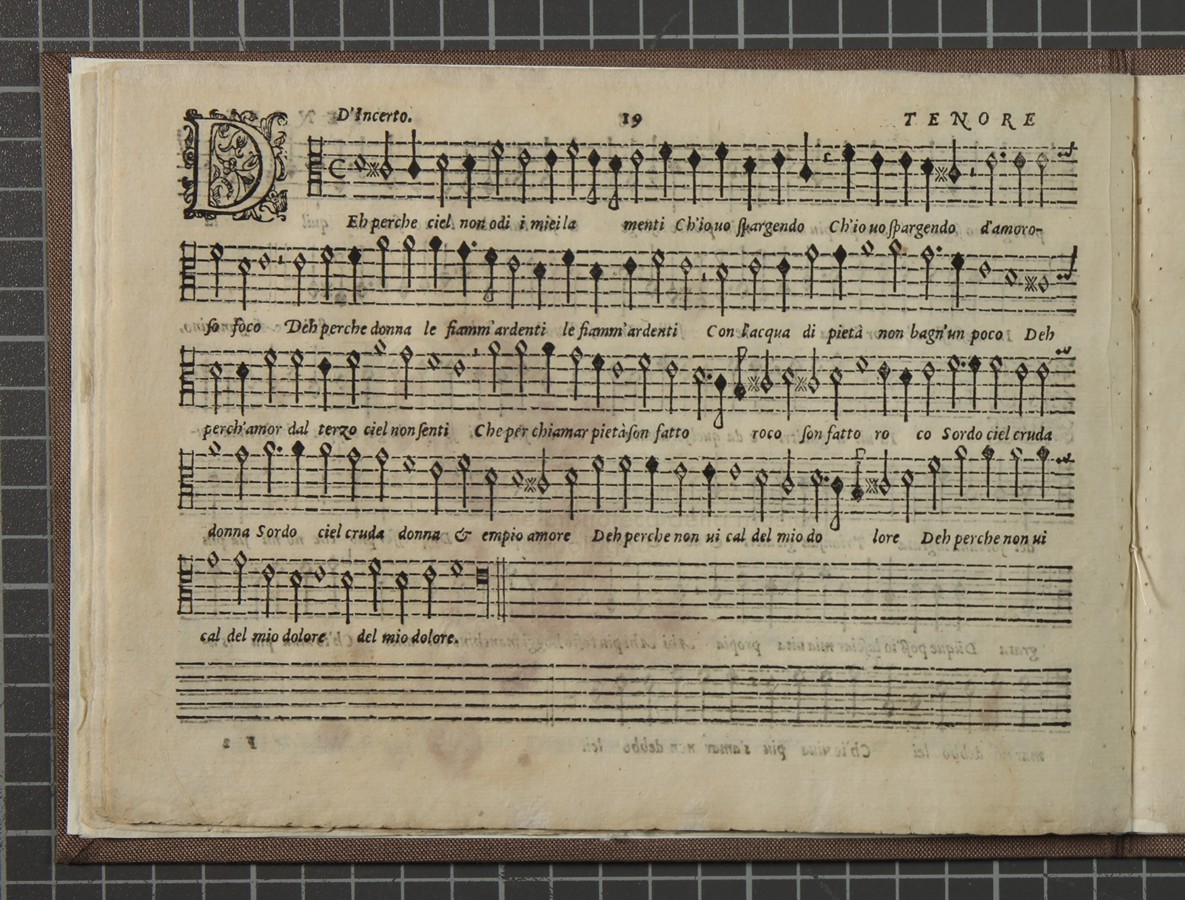 D'Incerto. 19 TENORE
DEh perche ciel non odi i miei la menti Ch'io uo spargendo Ch'io uo spargendo d'amoro-
so foco Deh perche donna le fiamm'ardenti le fiamm'ardenti Con l'acqua di pietà non bagn'un poco Deh
perch'amor dal terzo ciel non senti Che per chiamar pietà son fatto roco son fatto ro co Sordo ciel cruda
donna Sordo ciel cruda donna & empio amore Deh perche non ui cal del mio do lore Deh perche non ui
cal del mio dolore del mio dolore.